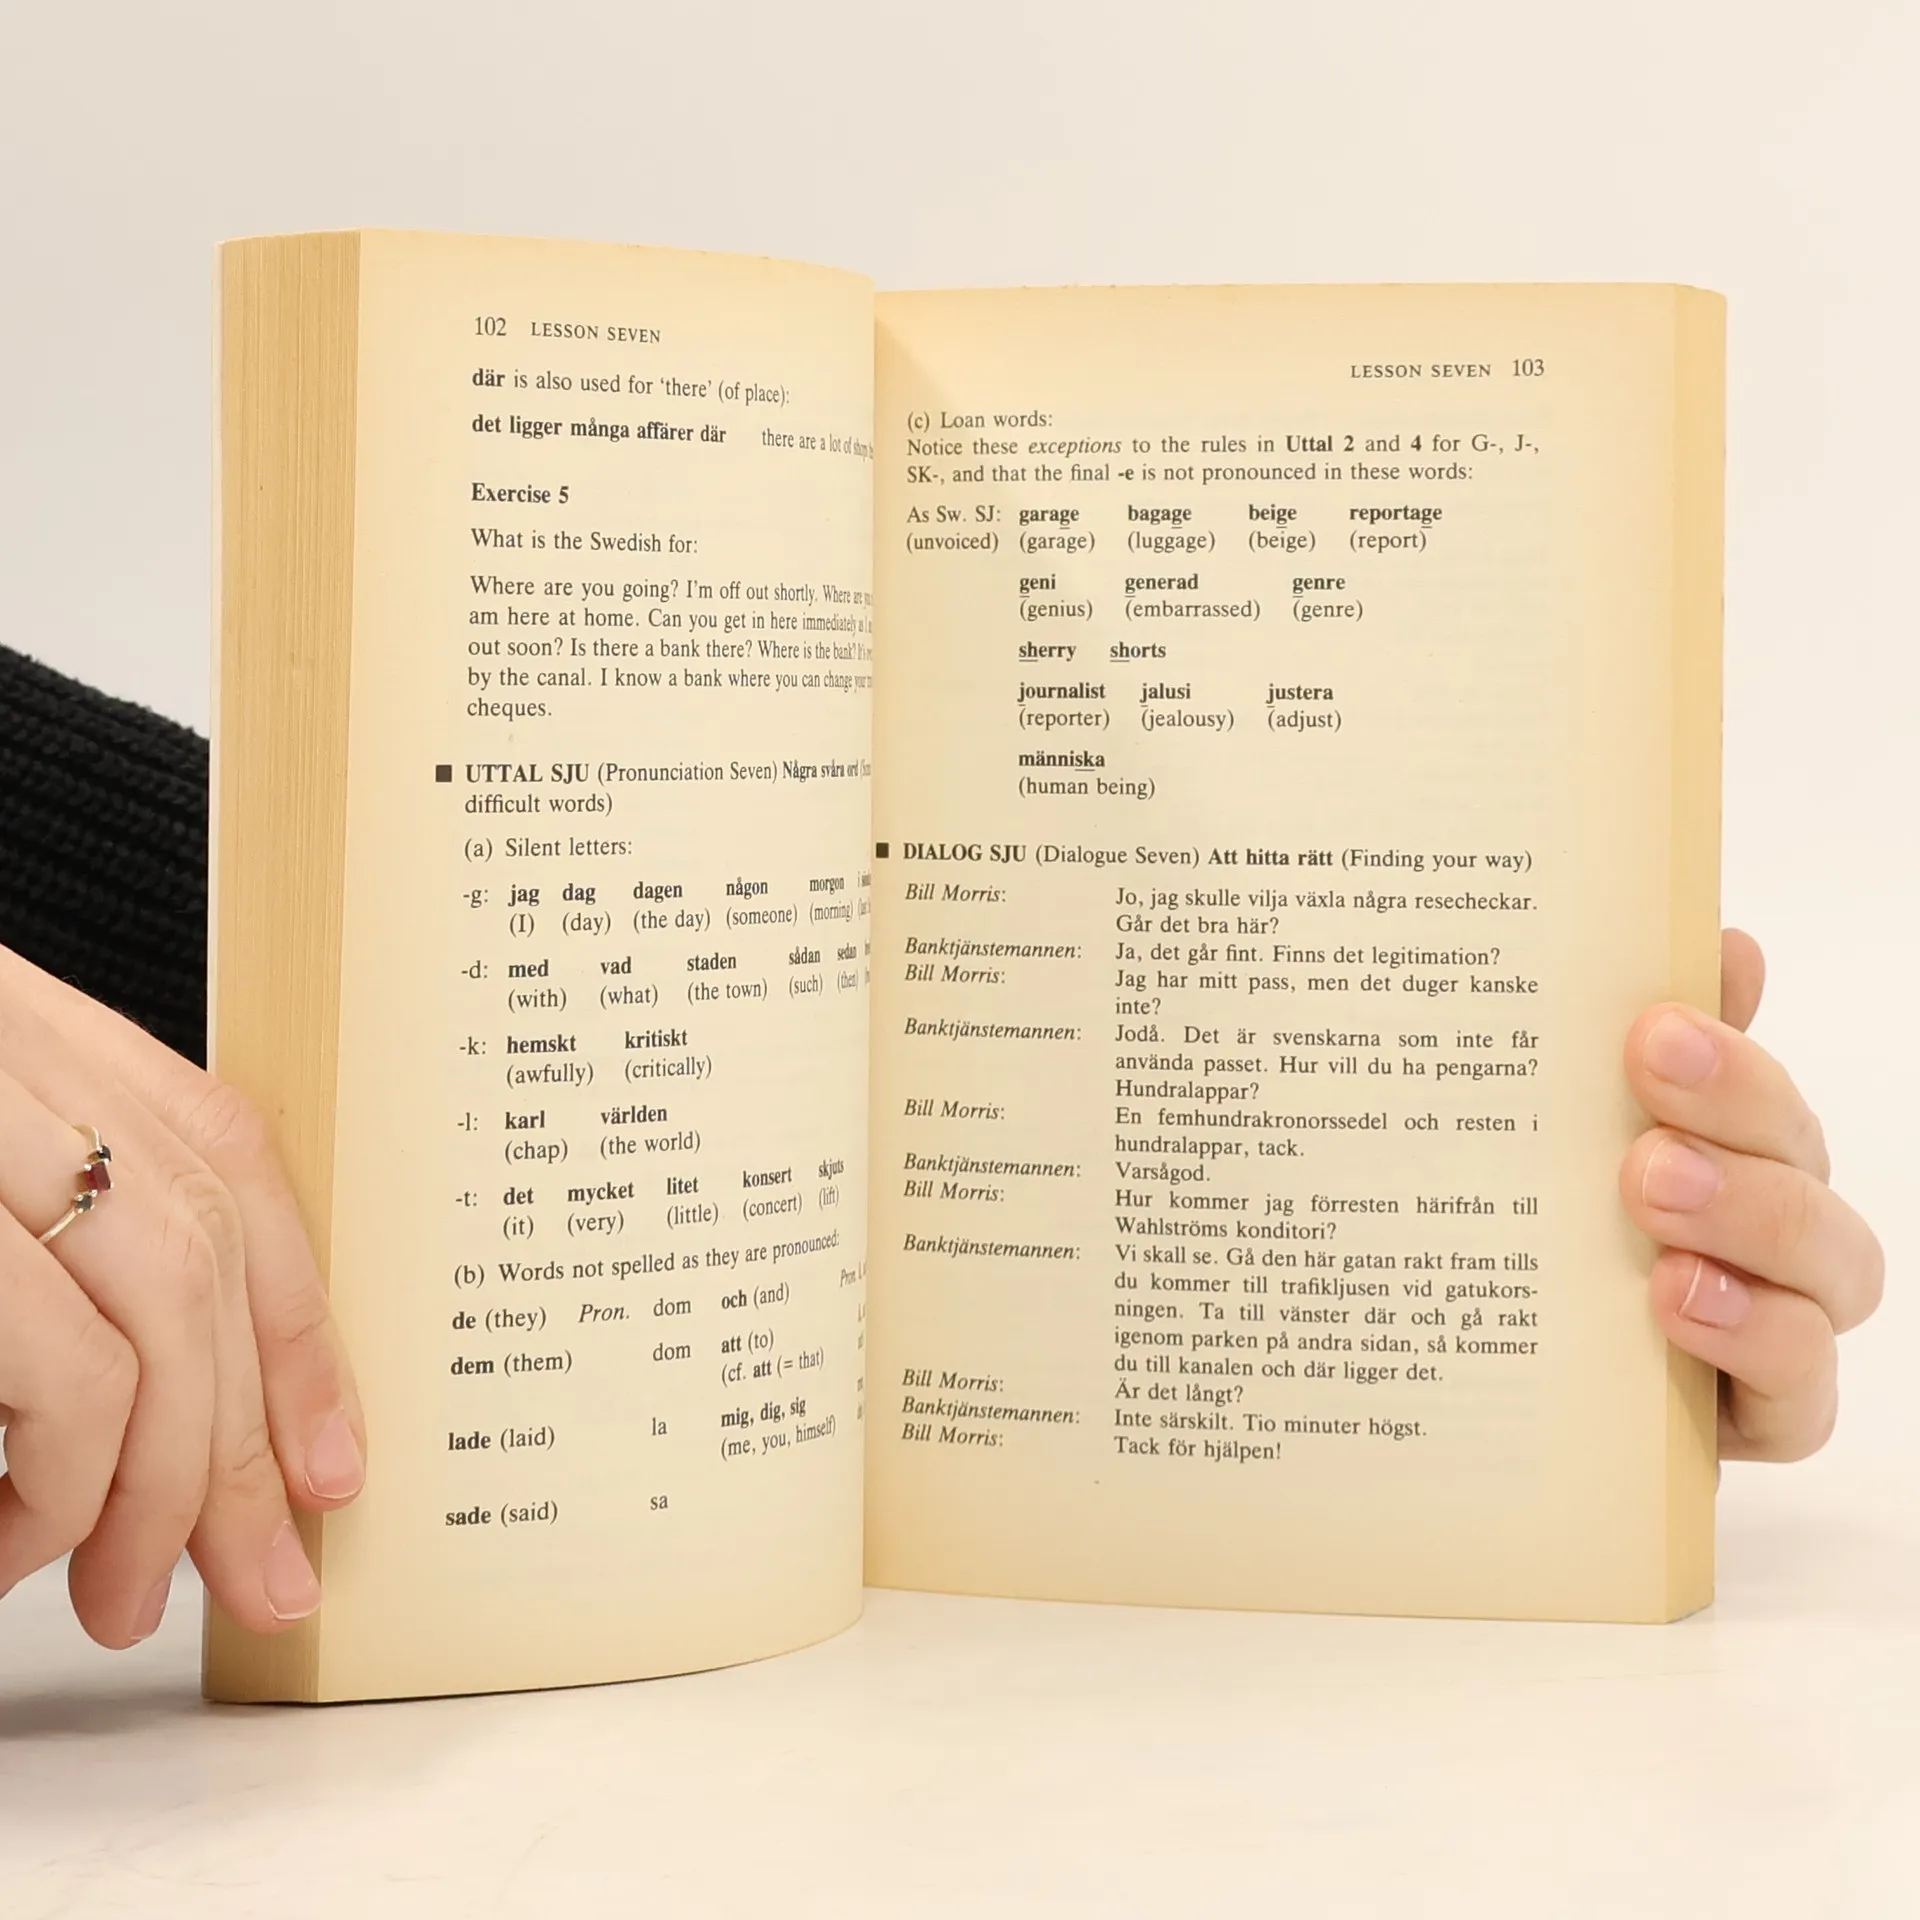 102 LESSON SEVEN
där is also used for ‘there’ (of place):
det ligger många affärer där there are a lot of shops
Exercise 5
What is the Swedish for:
Where are you going? I'm off out shortly. Where are
am here at home. Can you get in here immediately as I
out soon? Is there a bank there? Where is the bank?
by the canal. I know a bank where you can change your
cheques.
■ UTTAL SJU (Pronunciation Seven) Några svåra ord
difficult words)
(a) Silent letters:
-g: jag dag dagen någon morgon i
(I) (day) (the day) (someone) (morning)
-d: med vad staden sådan sedan
(with) (what) (the town) (such) (then)
-k: hemskt kritiskt
(awfully) (critically)
-l: karl världen
(chap) (the world)
-t: det mycket litet konsert skjuts
(it) (very) (little) (concert) (lift)
(b) Words not spelled as they are pronounced:
de (they) Pron. dom och (and) Pron.
dem (them) dom att (to)
(cf. att (= that)
lade (laid) la mig, dig, sig
(me, you, himself)
sade (said) sa
LESSON SEVEN 103
(c) Loan words:
Notice these exceptions to the rules in Uttal 2 and 4 for G-, J-,
SK-, and that the final -e is not pronounced in these words:
As Sw. SJ: garage bagage beige reportage
(unvoiced) (garage) (luggage) (beige) (report)
geni generad genre
(genius) (embarrassed) (genre)
sherry shorts
journalist jalusi justera
(reporter) (jealousy) (adjust)
människa
(human being)
■ DIALOG SJU (Dialogue Seven) Att hitta rätt (Finding your way)
Bill Morris: Jo, jag skulle vilja växla några resecheckar.
Går det bra här?
Banktjänstemannen: Ja, det går fint. Finns det legitimation?
Bill Morris: Jag har mitt pass, men det duger kanske
inte?
Banktjänstemannen: Jodå. Det är svenskarna som inte får
använda passet. Hur vill du ha pengarna?
Hundralappar?
Bill Morris: En femhundrakronorssedel och resten i
hundralappar, tack.
Banktjänstemannen: Varsågod.
Bill Morris: Hur kommer jag förresten härifrån till
Wahlströms konditori?
Banktjänstemannen: Vi skall se. Gå den här gatan rakt fram tills
du kommer till trafikljusen vid gatukors-
ningen. Ta till vänster där och gå rakt
igenom parken på andra sidan, så kommer
du till kanalen och där ligger det.
Bill Morris: Är det långt?
Banktjänstemannen: Inte särskilt. Tio minuter högst.
Bill Morris: Tack för hjälpen!